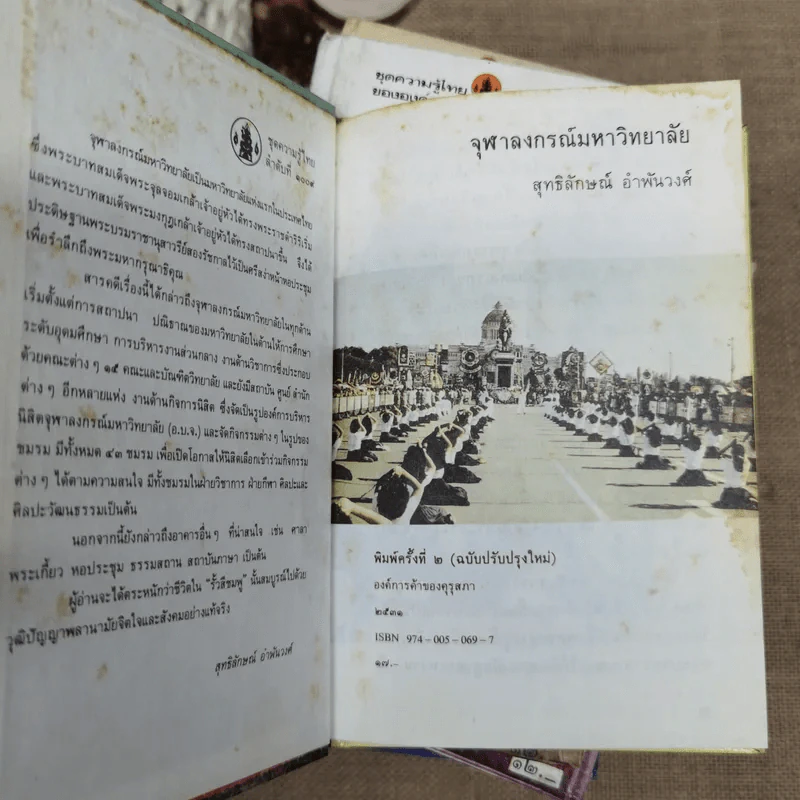 ชุดความรู้ไทย
ลำดับที่ ๑๐๐๙
จุฬาลงกรณ์มหาวิทยาลัยเป็นมหาวิทยาลัยแห่งแรกในประเทศไทย
ซึ่งพระบาทสมเด็จพระจุลจอมเกล้าเจ้าอยู่หัวได้ทรงพระราชดำริริเริ่ม
และพระบาทสมเด็จพระมงกุฎเกล้าเจ้าอยู่หัวได้ทรงสถาปนาขึ้น จึงได้
ประดิษฐานพระบรมราชานุสาวรีย์สองรัชกาลไว้เป็นศรีสง่าหน้าหอประชุม
เพื่อรำลึกถึงพระมหากรุณาธิคุณ
สารคดีเรื่องนี้ได้กล่าวถึงจุฬาลงกรณ์มหาวิทยาลัยในทุกด้าน
เริ่มตั้งแต่การสถาปนา ปณิธาณของมหาวิทยาลัยในด้านให้การศึกษา
ระดับอุดมศึกษา การบริหารงานส่วนกลาง งานด้านวิชาการซึ่งประกอบ
ด้วยคณะต่าง ๆ ๑๕ คณะและบัณฑิตวิทยาลัย และยังมีสถาบัน ศูนย์ สำนัก
ต่าง ๆ อีกหลายแห่ง งานด้านกิจการนิสิต ซึ่งจัดเป็นรูปองค์การบริหาร
นิสิตจุฬาลงกรณ์มหาวิทยาลัย (อ.บ.จ.) และจัดกิจกรรมต่าง ๆ ในรูปของ
ชมรม มีทั้งหมด ๔๓ ชมรม เพื่อเปิดโอกาสให้นิสิตเลือกเข้าร่วมกิจกรรม
ต่าง ๆ ได้ตามความสนใจ มีทั้งชมรมในฝ่ายวิชาการ ฝ่ายกีฬา ศิลปะและ
ศิลปะวัฒนธรรมเป็นต้น
นอกจากนี้ยังกล่าวถึงอาคารอื่น ๆ ที่น่าสนใจ เช่น ศาลา
พระเกี้ยว หอประชุม ธรรมสถาน สถาบันภาษา เป็นต้น
ผู้อ่านจะได้ตระหนักว่าชีวิตใน "รั้วสีชมพู" นั้นสมบูรณ์ไปด้วย
วุฒิปัญญาพลานามัยจิตใจและสังคมอย่างแท้จริง
สุทธิลักษณ์ อำพันวงศ์
ชุดความรู้ไทย
จุฬาลงกรณ์มหาวิทยาลัย
สุทธิลักษณ์ อำพันวงศ์
พิมพ์ครั้งที่ ๒ (ฉบับปรับปรุงใหม่)
องค์การค้าของคุรุสภา
๒๕๓๑
ISBN 974-005-069-7
๑๗.-
๑๒.-